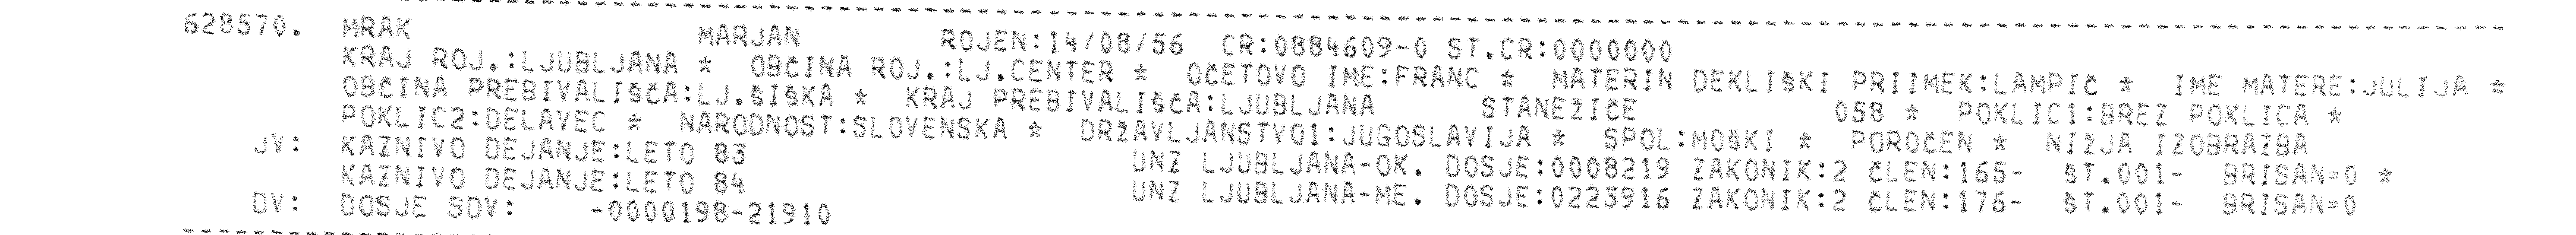 628570. MRAK MARJAN ROJEN:14/08/56 CR:0884609-0 ST.CR:0000000
KRAJ ROJ.:LJUBLJANA * OBČINA ROJ.:LJ.CENTER * OČETOVO IME:FRANC * MATERIN DEKLIŠKI PRIIMEK:LAMPIČ * IME MATERE:JULIJA *
OBČINA PREBIVALIŠČA:LJ.ŠIŠKA * KRAJ PREBIVALIŠČA:LJUBLJANA STANEŽIČE 058 * POKLIC1:BREZ POKLICA *
POKLIC2:DELAVEC * NARODNOST:SLOVENSKA * DRŽAVLJANSTVO1:JUGOSLAVIJA * SPOL:MOŠKI * POROČEN * NIŽJA IZOBRAZBA
JV: KAZNIVO DEJANJE:LETO 83 UNZ LJUBLJANA-OK. DOSJE:0008219 ZAKONIK:2 ČLEN:165- ŠT.001- BRISAN=0 *
KAZNIVO DEJANJE:LETO 84 UNZ LJUBLJANA-ME. DOSJE:0223916 ZAKONIK:2 ČLEN:176- ŠT.001- BRISAN=0
DV: DOSJE SDV: -0000198-21910